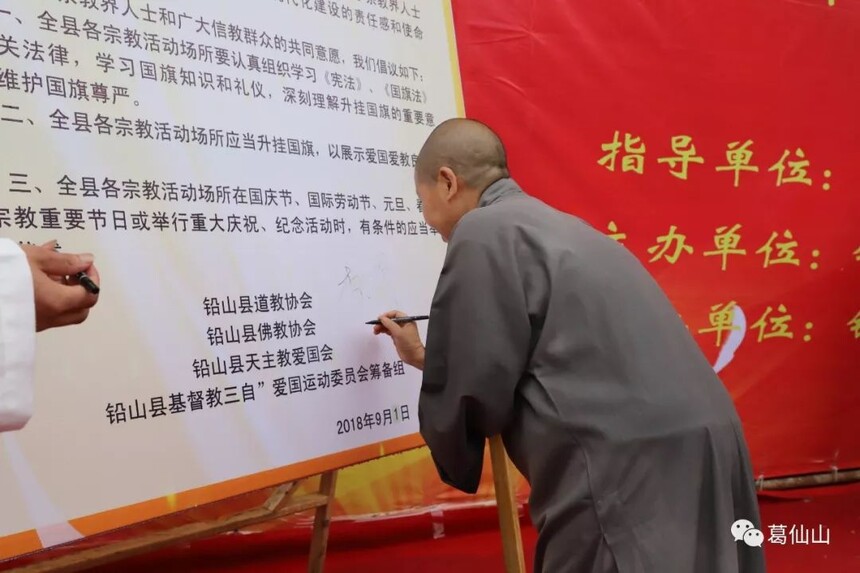 宗教界人士和广大信教群众的共同意愿，我们倡议如下：
一、全县各宗教活动场所要认真组织学习《宪法》、《国旗法》
关法律，学习国旗知识和礼仪，深刻理解升挂国旗的重要意
维护国旗尊严。
二、全县各宗教活动场所应当升挂国旗，以展示爱国爱教
三、全县各宗教活动场所在国庆节、国际劳动节、元旦、
宗教重要节日或举行重大庆祝、纪念活动时，有条件的应当
铅山县道教协会
铅山县佛教协会
铅山县天主教爱国会
铅山县基督教三自”爱国运动委员会筹备组
2018年9月1日
指导单位：
主办单位：
单位：
葛仙山